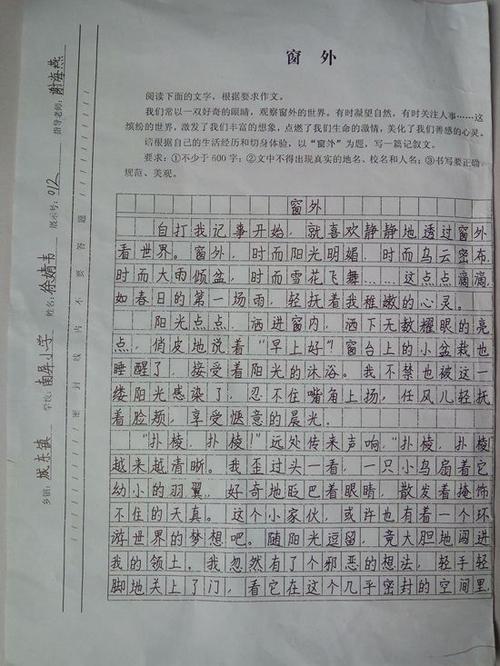 窗 外
阅读下面的文字，根据要求作文。
我们常以一双好奇的眼睛，观察窗外的世界。有时凝望自然，有时关注人事……这
缤纷的世界，激发了我们丰富的想象，点燃了我们生命的激情，美化了我们善感的心灵。
请根据自己的生活经历和切身体验，以“窗外”为题，写一篇记叙文。
要求：①不少于600字；②文中不得出现真实的地名、校名和人名；③书写要正确、
规范、美观。
窗外
自打我记事开始，就喜欢静静地透过窗外
看世界。窗外，时而阳光明媚，时而乌云密布，
时而大雨倾盆，时而雪花飞舞……这点点滴滴，
如春日的第一场雨，轻抚着我稚嫩的心灵。
阳光点点，洒进窗内，洒下无数耀眼的亮
点，俏皮地说着“早上好”窗台上的小盆栽也
睡醒了，接受着阳光的沐浴。我不禁也被这一
缕阳光感染了，忍不住嘴角上扬，任风儿轻抚
着脸颊，享受惬意的晨光。
“扑棱，扑棱！”远处传来声响“扑棱，扑棱”
越来越清晰。我歪过头一看，一只小鸟扇着它
幼小的羽翼，好奇地眨巴着眼睛，散发着掩饰
不住的天真。这个小家伙，或许也有着一个环
游世界的梦想吧。随阳光逗留，竟大胆地闯进
我的领土。我忽然有了个邪恶的想法，轻手轻
脚地关上了门，看它在这个几乎密封的空间里
乡镇：城东镇 学校：南屏小学 姓名：徐婧韦 展示号：012 指导老师：谢海燕
密 封 线 内 不 要 答 题